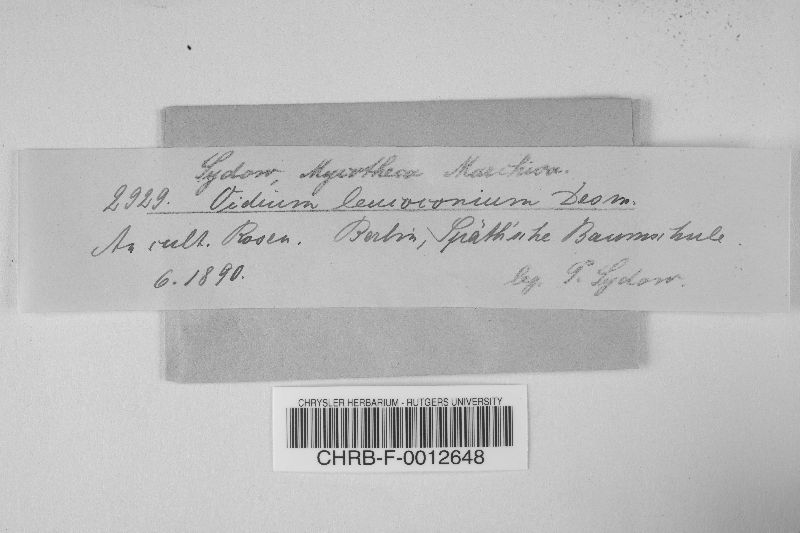 Sydow, Mycotheca Marchica.
2929. Oidium leucoconium Desm.
An cult. Rosen. Berlin, Späth'sche Baumschule.
6. 1890. leg. P. Sydow.
CHRYSLER HERBARIUM - RUTGERS UNIVERSITY
CHRB-F-0012648